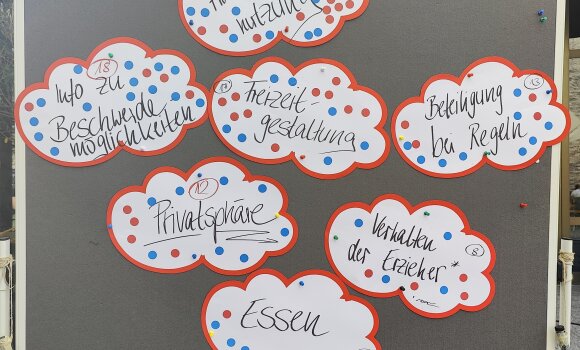 nutzung
18
Info zu
Beschwerde
möglichkeiten
Freizeit-
gestaltung
13
Beteiligung
bei Regeln
12
Privatsphäre
Verhalten
der Erzieher*
8
Essen